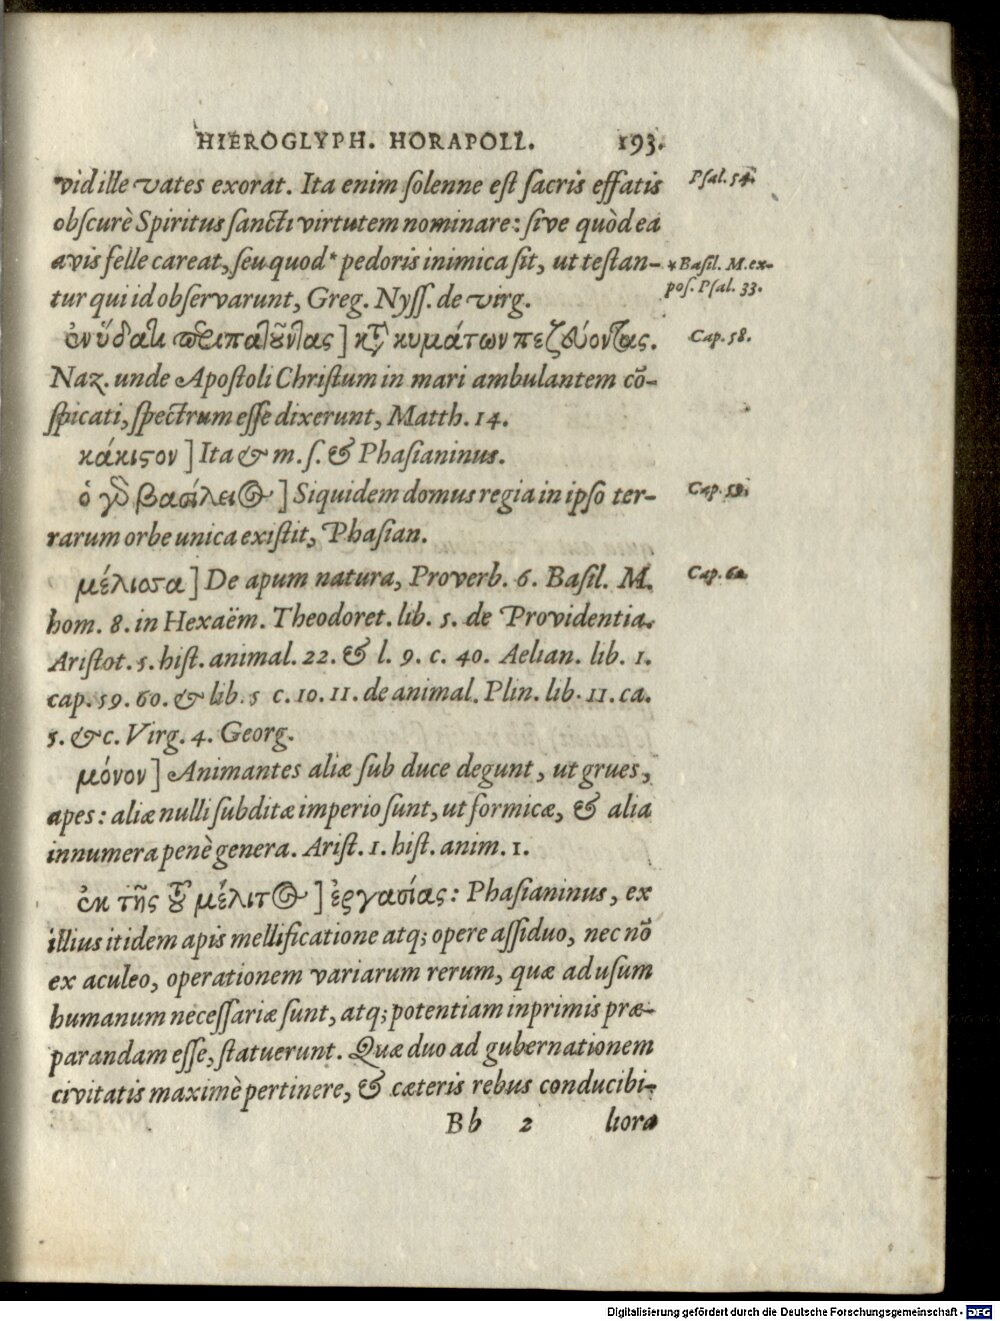 HIEROGLYPH. HORAPOLL. 193.
vid ille vates exorat. Ita enim solenne est sacris effatis
Psal. 54.
obscurè Spiritus sancti virtutem nominare: sive quòd ea
avis felle careat, seu quod * pedoris inimica sit, ut testan-
* Basil. M. ex-
pos. Psal. 33.
tur qui id observarunt, Greg. Nyss. de virg.
ἐν ὕδατι περιπατοῦντας] κατὰ κυμάτων πεζεύοντας.
Cap. 58.
Naz. unde Apostoli Christum in mari ambulantem cō-
spicati, spectrum esse dixerunt, Matth. 14.
κάκιστον] Ita & m. s. & Phasianinus.
ὁ γὰρ βασίλειος] Siquidem domus regia in ipso ter-
Cap. 59.
rarum orbe unica existit, Phasian.
μέλισσα] De apum natura, Proverb. 6. Basil. M.
Cap. 60.
hom. 8. in Hexaëm. Theodoret. lib. 5. de Providentia.
Aristot. 5. hist. animal. 22. & l. 9. c. 40. Aelian. lib. 1.
cap. 59. 60. & lib. 5 c. 10. 11. de animal. Plin. lib. 11. ca.
5. &c. Virg. 4. Georg.
μόνον] Animantes aliæ sub duce degunt, ut grues,
apes: aliæ nulli subditæ imperio sunt, ut formicæ, & alia
innumera penè genera. Arist. 1. hist. anim. 1.
ἐκ τῆς τοῦ μέλιτος] ἐργασίας: Phasianinus, ex
illius itidem apis mellificatione atq; opere assiduo, nec nō
ex aculeo, operationem variarum rerum, quæ ad usum
humanum necessariæ sunt, atq; potentiam inprimis præ-
parandam esse, statuerunt. Quæ duo ad gubernationem
civitatis maximè pertinere, & cæteris rebus conducibi-
Bb 2 liora
Digitalisierung gefördert durch die Deutsche Forschungsgemeinschaft - DFG